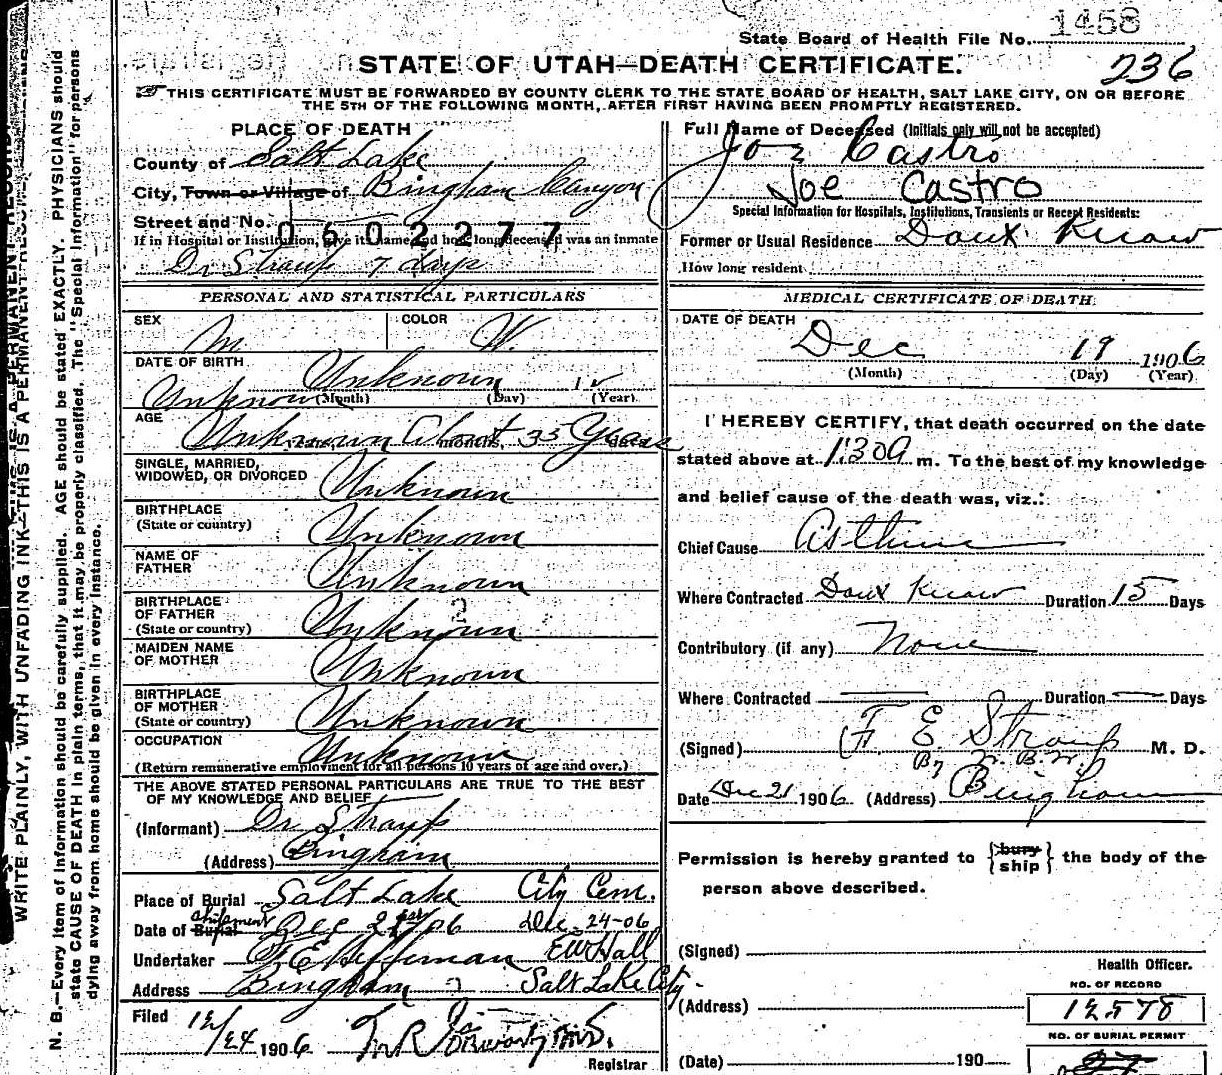 1458
State Board of Health File No.
236
STATE OF UTAH—DEATH CERTIFICATE.
THIS CERTIFICATE MUST BE FORWARDED BY COUNTY CLERK TO THE STATE BOARD OF HEALTH, SALT LAKE CITY, ON OR BEFORE
THE 5TH OF THE FOLLOWING MONTH, AFTER FIRST HAVING BEEN PROMPTLY REGISTERED.
WRITE PLAINLY, WITH UNFADING INK—THIS IS A PERMANENT RECORD
N. B.—Every item of information should be carefully supplied. AGE should be stated EXACTLY. PHYSICIANS should
state CAUSE OF DEATH in plain terms, that it may be properly classified. The "Special Information" for persons
dying away from home should be given in every instance.
PLACE OF DEATH
County of Salt Lake
City, Town or Village of Bingham Canyon
Street and No.
0602277
If in Hospital or Institution, give its name and how long deceased was an inmate
Dr Straup 7 days
PERSONAL AND STATISTICAL PARTICULARS
SEX M COLOR W.
DATE OF BIRTH
Unknown
Unknown (Month) (Day) (Year)
AGE
Unknown About 35 Years
SINGLE, MARRIED,
WIDOWED, OR DIVORCED Unknown
BIRTHPLACE
(State or country) Unknown
NAME OF
FATHER Unknown
BIRTHPLACE
OF FATHER
(State or country) Unknown
MAIDEN NAME
OF MOTHER Unknown
BIRTHPLACE
OF MOTHER
(State or country) Unknown
OCCUPATION Unknown
(Return remunerative employment for all persons 10 years of age and over.)
THE ABOVE STATED PERSONAL PARTICULARS ARE TRUE TO THE BEST
OF MY KNOWLEDGE AND BELIEF
(Informant) Dr Straup
(Address) Bingham
Place of Burial Salt Lake City Cem.
shipment
Date of Burial Dec 21st/06 Dec. 24-06
Undertaker E W Hall
Address Bingham Salt Lake City
Filed 12/24 1906
Registrar
Full Name of Deceased (Initials only will not be accepted)
Joe Castro
Joe Castro
Special Information for Hospitals, Institutions, Transients or Recent Residents:
Former or Usual Residence Dont Know
How long resident
MEDICAL CERTIFICATE OF DEATH
DATE OF DEATH
Dec 19 1906
(Month) (Day) (Year)
I HEREBY CERTIFY, that death occurred on the date
stated above at 1:30 a m. To the best of my knowledge
and belief cause of the death was, viz.:
Chief Cause Asthma
Where Contracted Dont Know Duration 15 Days
Contributory (if any) None
Where Contracted Duration Days
(Signed) F. E. Straup M. D.
Date Dec 21 1906 (Address) Bingham
Permission is hereby granted to {bury ship} the body of the
person above described.
(Signed)
Health Officer.
NO. OF RECORD
(Address) 12578
NO. OF BURIAL PERMIT
(Date) 190